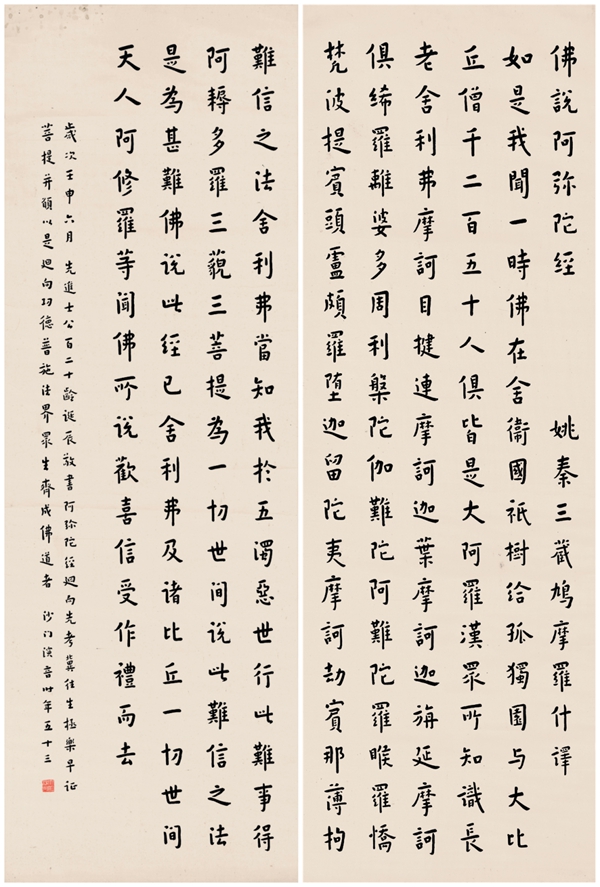 佛說阿弥陀經 姚秦三藏鳩摩羅什譯
如是我聞一時佛在舍衞國祇樹給孤獨園与大比
丘僧千二百五十人俱皆是大阿羅漢眾所知識長
老舍利弗摩訶目揵連摩訶迦葉摩訶迦旃延摩訶
俱絺羅離婆多周利槃陀伽難陀阿難陀羅睺羅憍
梵波提賓頭盧頗羅堕迦留陀夷摩訶劫賓那薄拘
難信之法舍利弗當知我於五濁惡世行此難事得
阿耨多羅三藐三菩提為一切世间說此難信之法
是為甚難佛說此經已舍利弗及諸比丘一切世间
天人阿修羅等聞佛所說歡喜信受作禮而去
歲次壬申六月 先進士公百二十齡誕辰敬書阿弥陀經廻向先考冀往生極樂早证
菩提并願以是廻向功德普施法界眾生齊成佛道者 沙门演音时年五十三